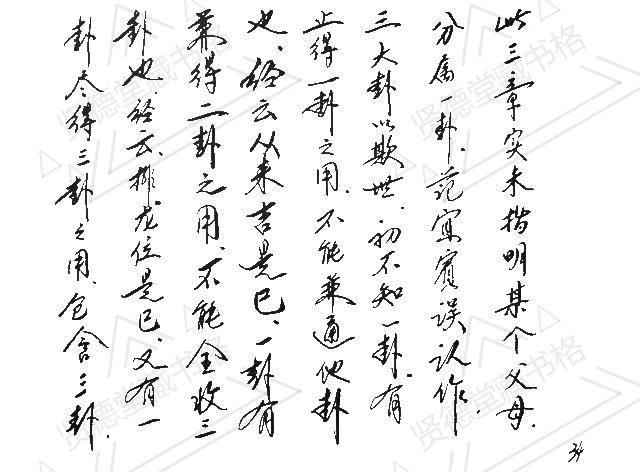 此三章实未揩明某个父母.
分属一卦.范宜宾误认作.
三大卦以欺世.初不知一卦.有
止得一卦之用.不能兼通他卦
也.经云从来吉是已.一卦有
兼得二卦之用.不能全收三
卦也.经云.排龙位是已.又有一
卦尽得三卦之用.包含三卦.
贤德堂藏书格